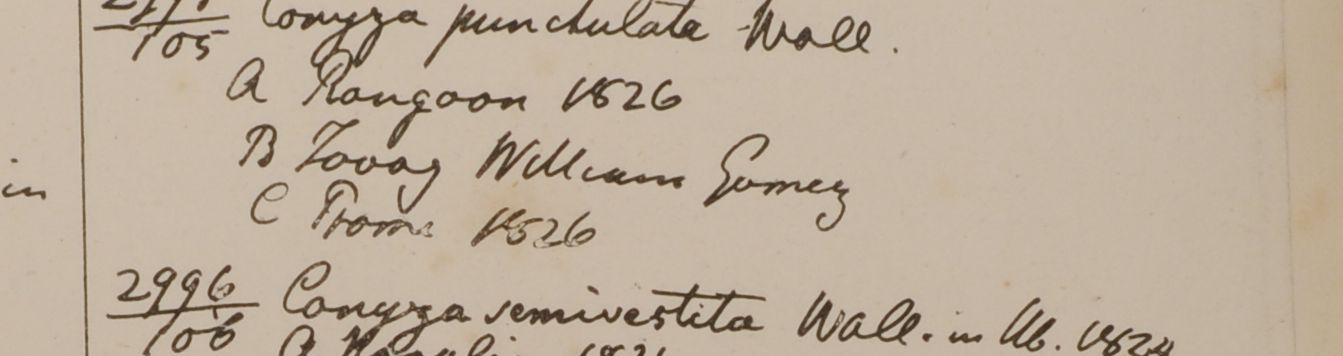 105 Conyza punctulata Wall.
A Rangoon 1826
B Tavoy William Gomez
in
C Prome 1826
2996 Conyza semivestita Wall. in Hb. 1824
106 A